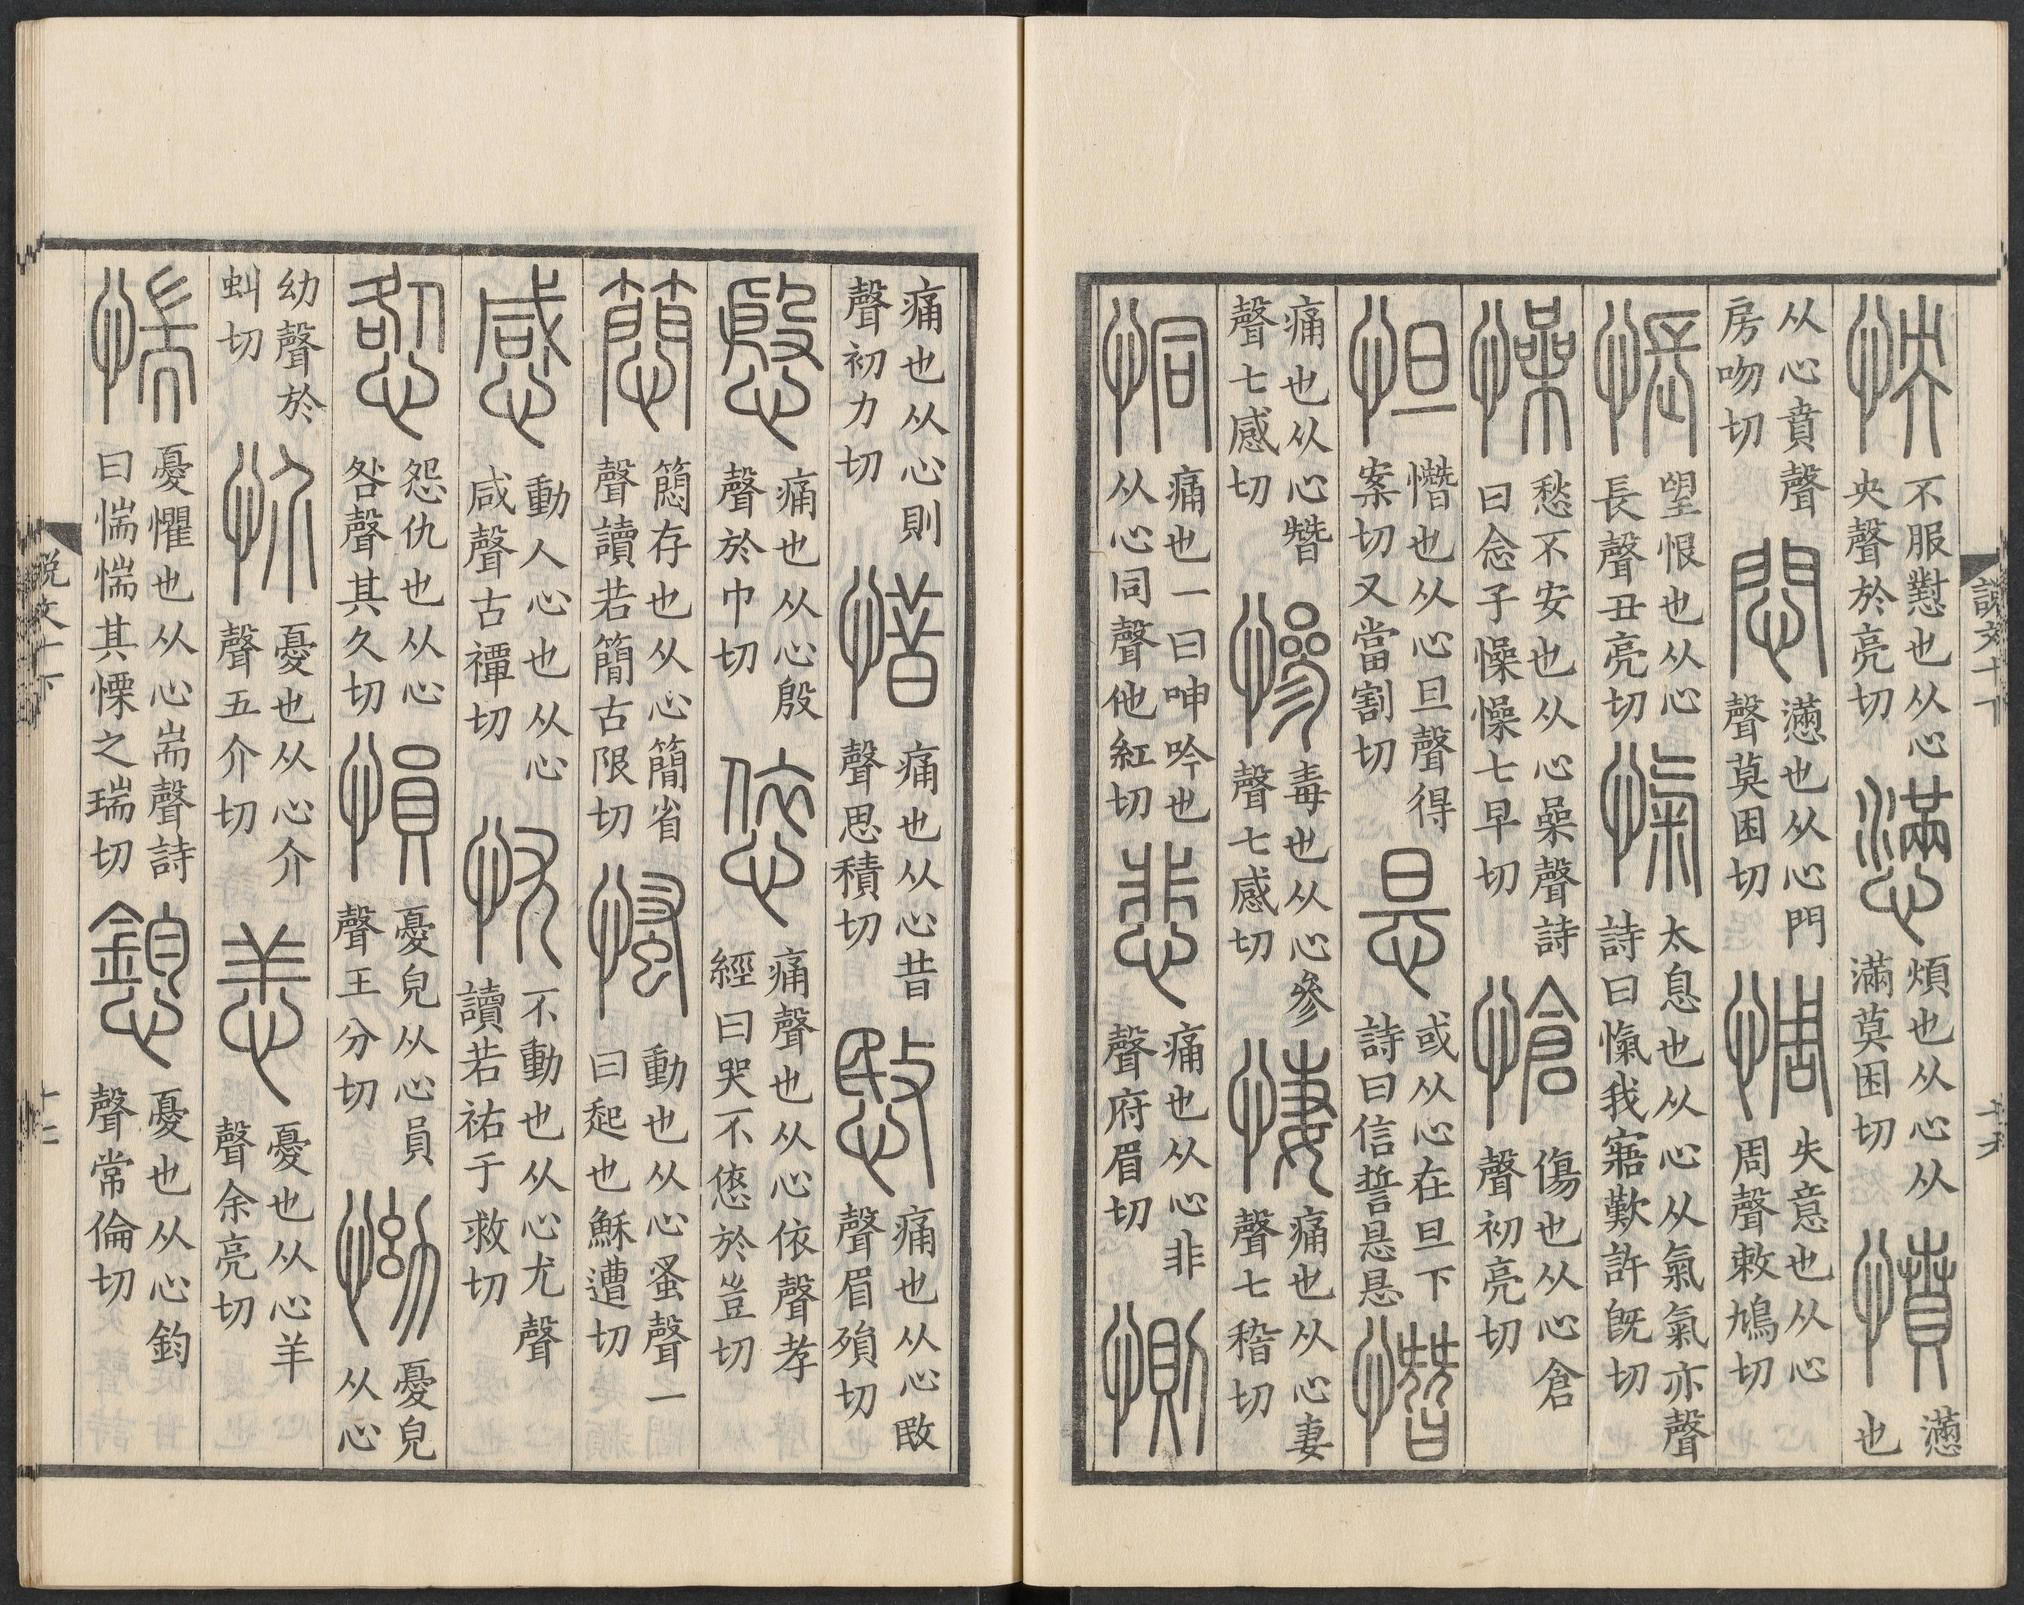 怏 不服懟也从心央聲於亮切 懣 煩也从心从滿莫困切 憤 懣也
从心賁聲房吻切 悶 懣也从心門聲莫困切 惆 失意也从心周聲敕鳩切
悵 望恨也从心長聲丑亮切 愾 太息也从心从氣氣亦聲詩曰愾我寤歎許旣切
懆 愁不安也从心喿聲詩曰念子懆懆七早切 愴 傷也从心倉聲初亮切
怛 憯也从心旦聲得案切又當割切 悬 或从心在旦下詩曰信誓悬悬 憯
痛也从心朁聲七感切 慘 毒也从心參聲七感切 悽 痛也从心妻聲七稽切
恫 痛也一曰呻吟也从心同聲他紅切 悲 痛也从心非聲府眉切 惻
痛也从心則聲初力切 惜 痛也从心昔聲思積切 愍 痛也从心敃聲眉殞切
慇 痛也从心殷聲於巾切 㥋 痛聲也从心依聲孝經曰哭不㥋於豈切
簡 𥳑存也从心簡省聲讀若簡古限切 慅 動也从心蚤聲一曰起也穌遭切
感 動人心也从心咸聲古禫切 忧 不動也从心尤聲讀若祐于救切
惎 怨仇也从心咎聲其久切 愪 憂皃从心員聲王分切 怮 憂皃从心
幼聲於虯切 忦 憂也从心介聲五介切 恙 憂也从心羊聲余亮切
惴 憂懼也从心耑聲詩曰惴惴其慄之瑞切 憌 憂也从心鈞聲常倫切
說文十下
說文十下
十二